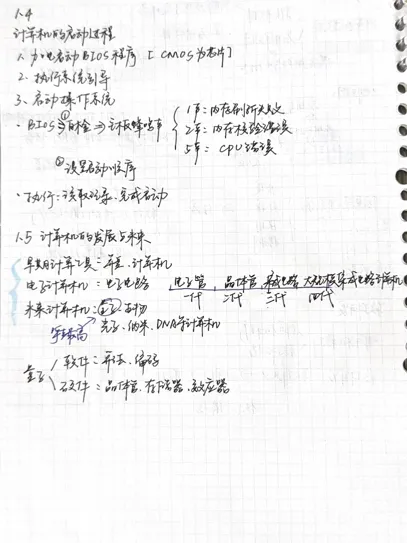 1.4
计算机的启动过程
1. 加电启动BIOS程序 [CMOS为芯片]
2. 执行系统引导
3. 启动操作系统
· BIOS ①自检 ⇒ 主板蜂鸣声
1声:内存刷新失败
2声:内存校验错误
5声: CPU错误
②设置启动顺序
· 执行:读取记录、完成启动
1.5 计算机的发展与未来
早期计算工具: 计算机
电子计算机:电子电路 电子管 晶体管 集成电路 大规模集成电路计算机
一代 二代 三代 四代
未来计算机:量子
光子、纳米、DNA等计算机
量子
软件:算法、编码
硬件:晶体管、存储器、效应器